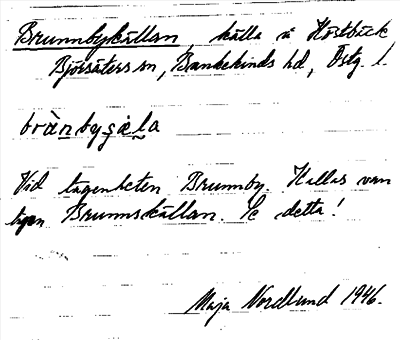 Brunnbykällan källa å Höstbäck
Björsäters sn, Bankekinds hd, Östg. l.
brànbyʂàla
Vid lägenheten Brunnby. Kallas van
ligen Brunnskällan. Se detta!
Maja Nordlund 1946.